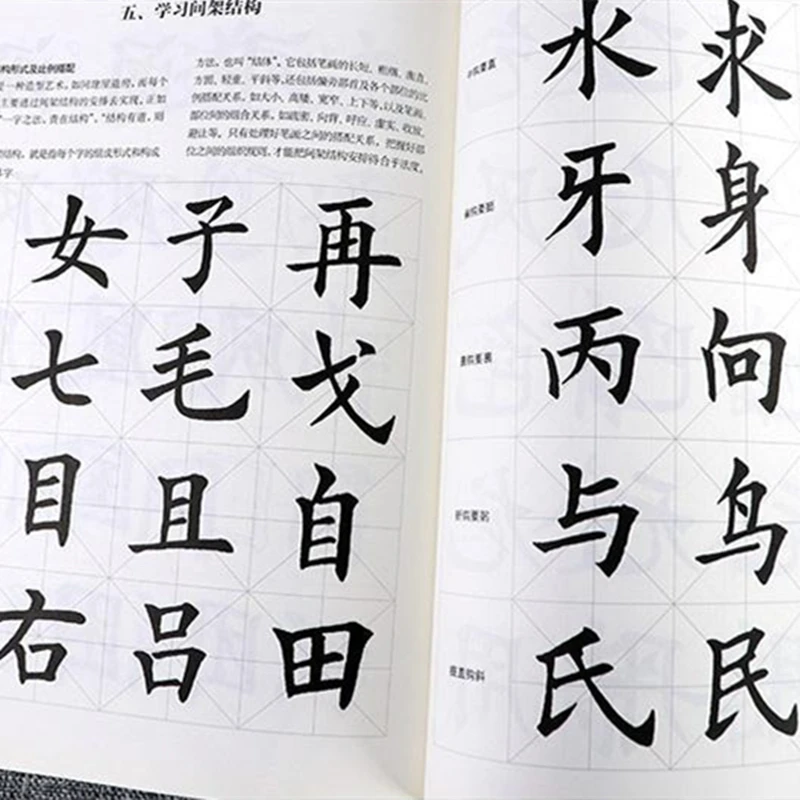 五、学习间架结构
构形式及比例搭配
是一种造型艺术，如同建屋造房，而每个
主要通过间架结构的安排去实现，正如
“一字之法，贵在结构”，“结构有道，则
结构，就是指每个字的组成形式和构成
方法，也叫“结体”。它包括笔画的长短、粗细、曲直、
方圆、轻重、平斜等，还包括偏旁部首及各个部位的比
例搭配关系，如大小、高矮、宽窄、上下等，以及笔画、
部位间的组合关系，如疏密、向背、呼应、虚实、收放、
避让等。只有处理好笔画之间的搭配关系，把握好部
位之间的组织规则，才能把间架结构安排得合于法度。
女 子 再
七 毛 戈
目 且 自
右 吕 田
水 求
牙 身
丙 向
与 鸟
垂直钩斜 氏 民